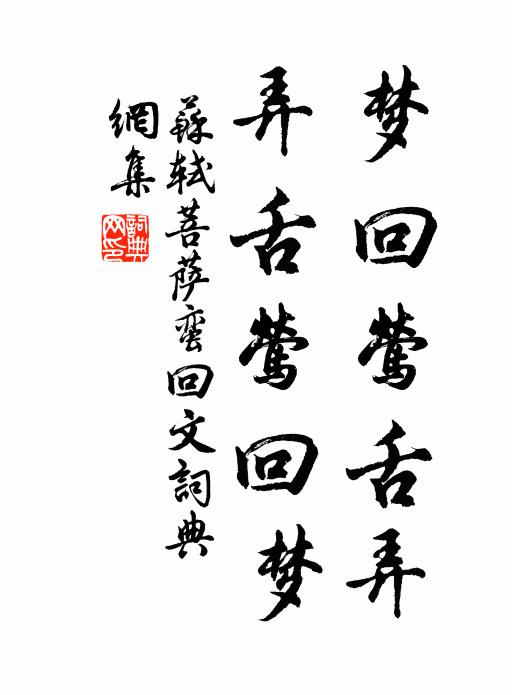 梦回莺舌弄
弄舌莺回梦
蘇軾菩萨蛮回文詞典
網集
詞典网印